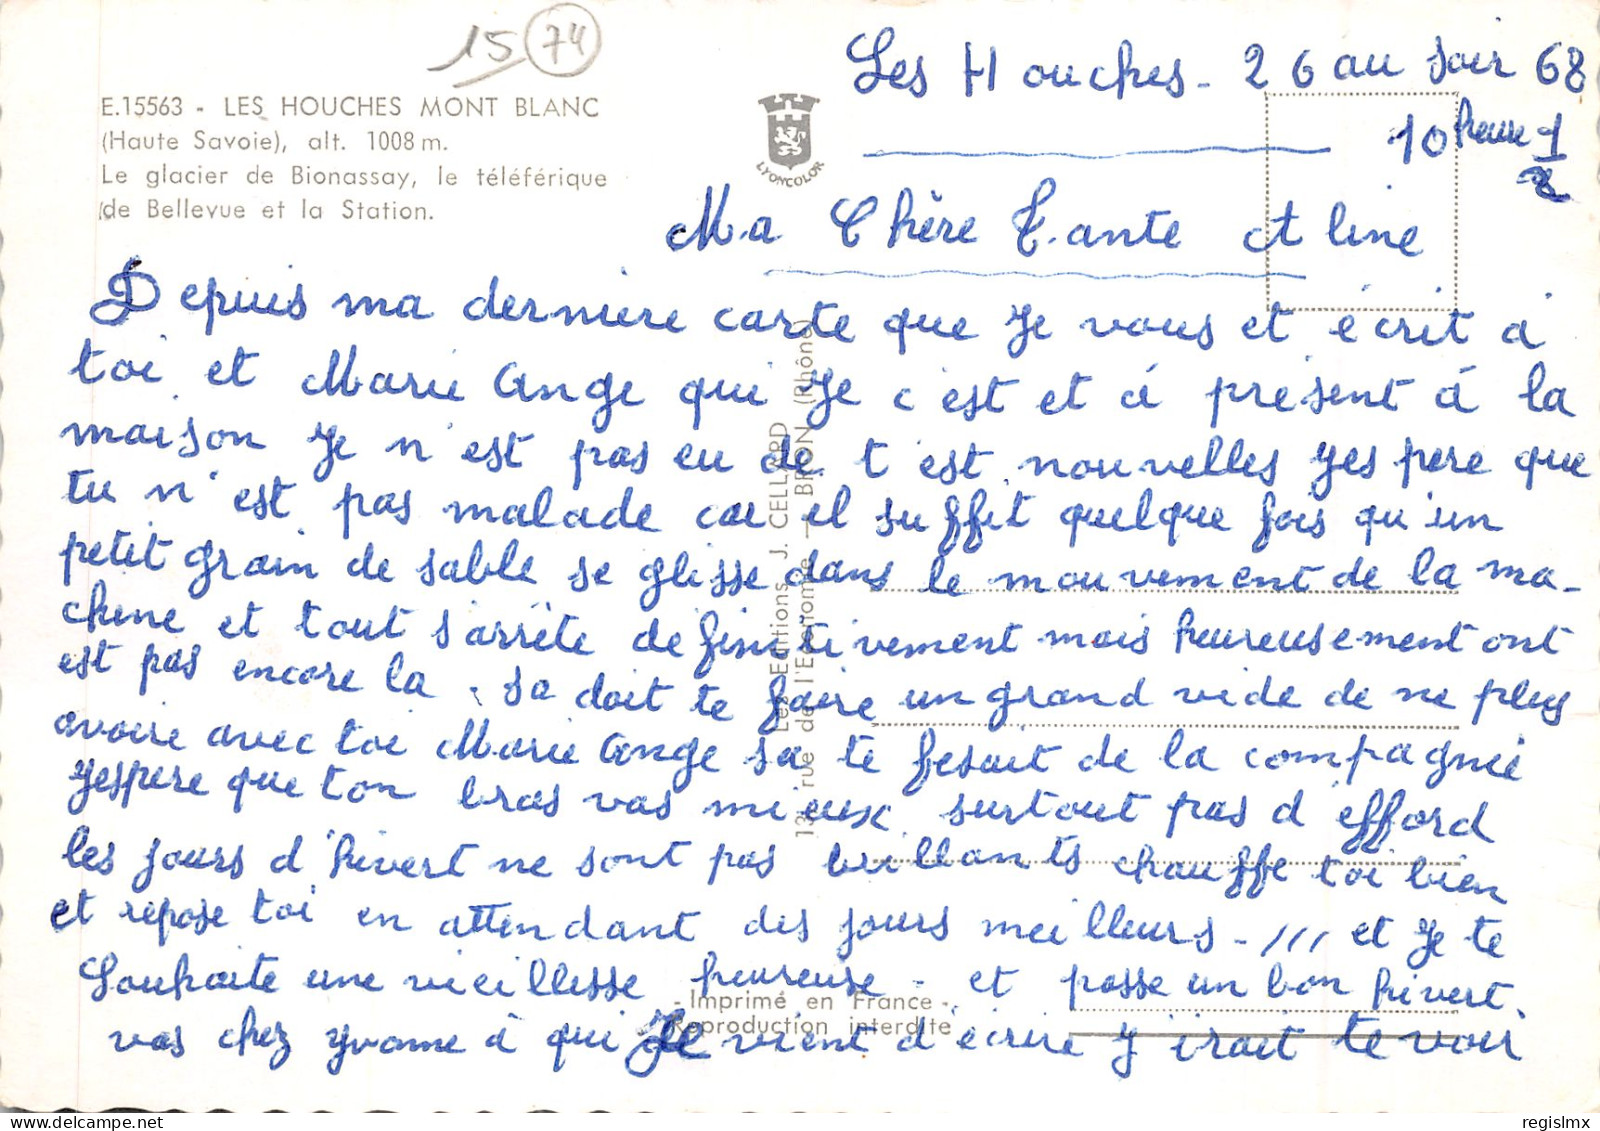 15 74
E.15563 - LES HOUCHES MONT BLANC
(Haute Savoie), alt. 1008 m.
Le glacier de Bionassay, le téléférique
de Bellevue et la Station.
LYONCOLOR
Les Editions J. CELLARD
13, rue de l'Economie — BRON (Rhône)
- Imprimé en France -
Reproduction interdite
Les Houches - 26 au soir 68
10 heure 1/2
Ma Chère Tante Aline
Depuis ma derniere carte que Je vous et écrit á
toi et Marie Ange qui Je c'est et á présent á la
maison Je n'est pas eu de t'est nouvelles yespere que
tu n'est pas malade car il suffit quelque fois qu'un
petit grain de sable se glisse dans le mouvement de la ma-
chine et tout s'arrête definitivement mais heureusement ont
est pas encore la. sa doit te faire un grand vide de ne plus
avoire avec toi Marie Ange sa te fesait de la compagnie
yespere que ton bras vas mieux. surtout pas d'efford
les jours d'hivert ne sont pas brillants chauffe toi bien
et repose toi en attendant des jours meilleurs - /// et Je te
souhaite une vieillesse heureuse - et passe un bon hivert
vas chez Yvonne á qui Je vient d'écrire y irait te voir
regislmx